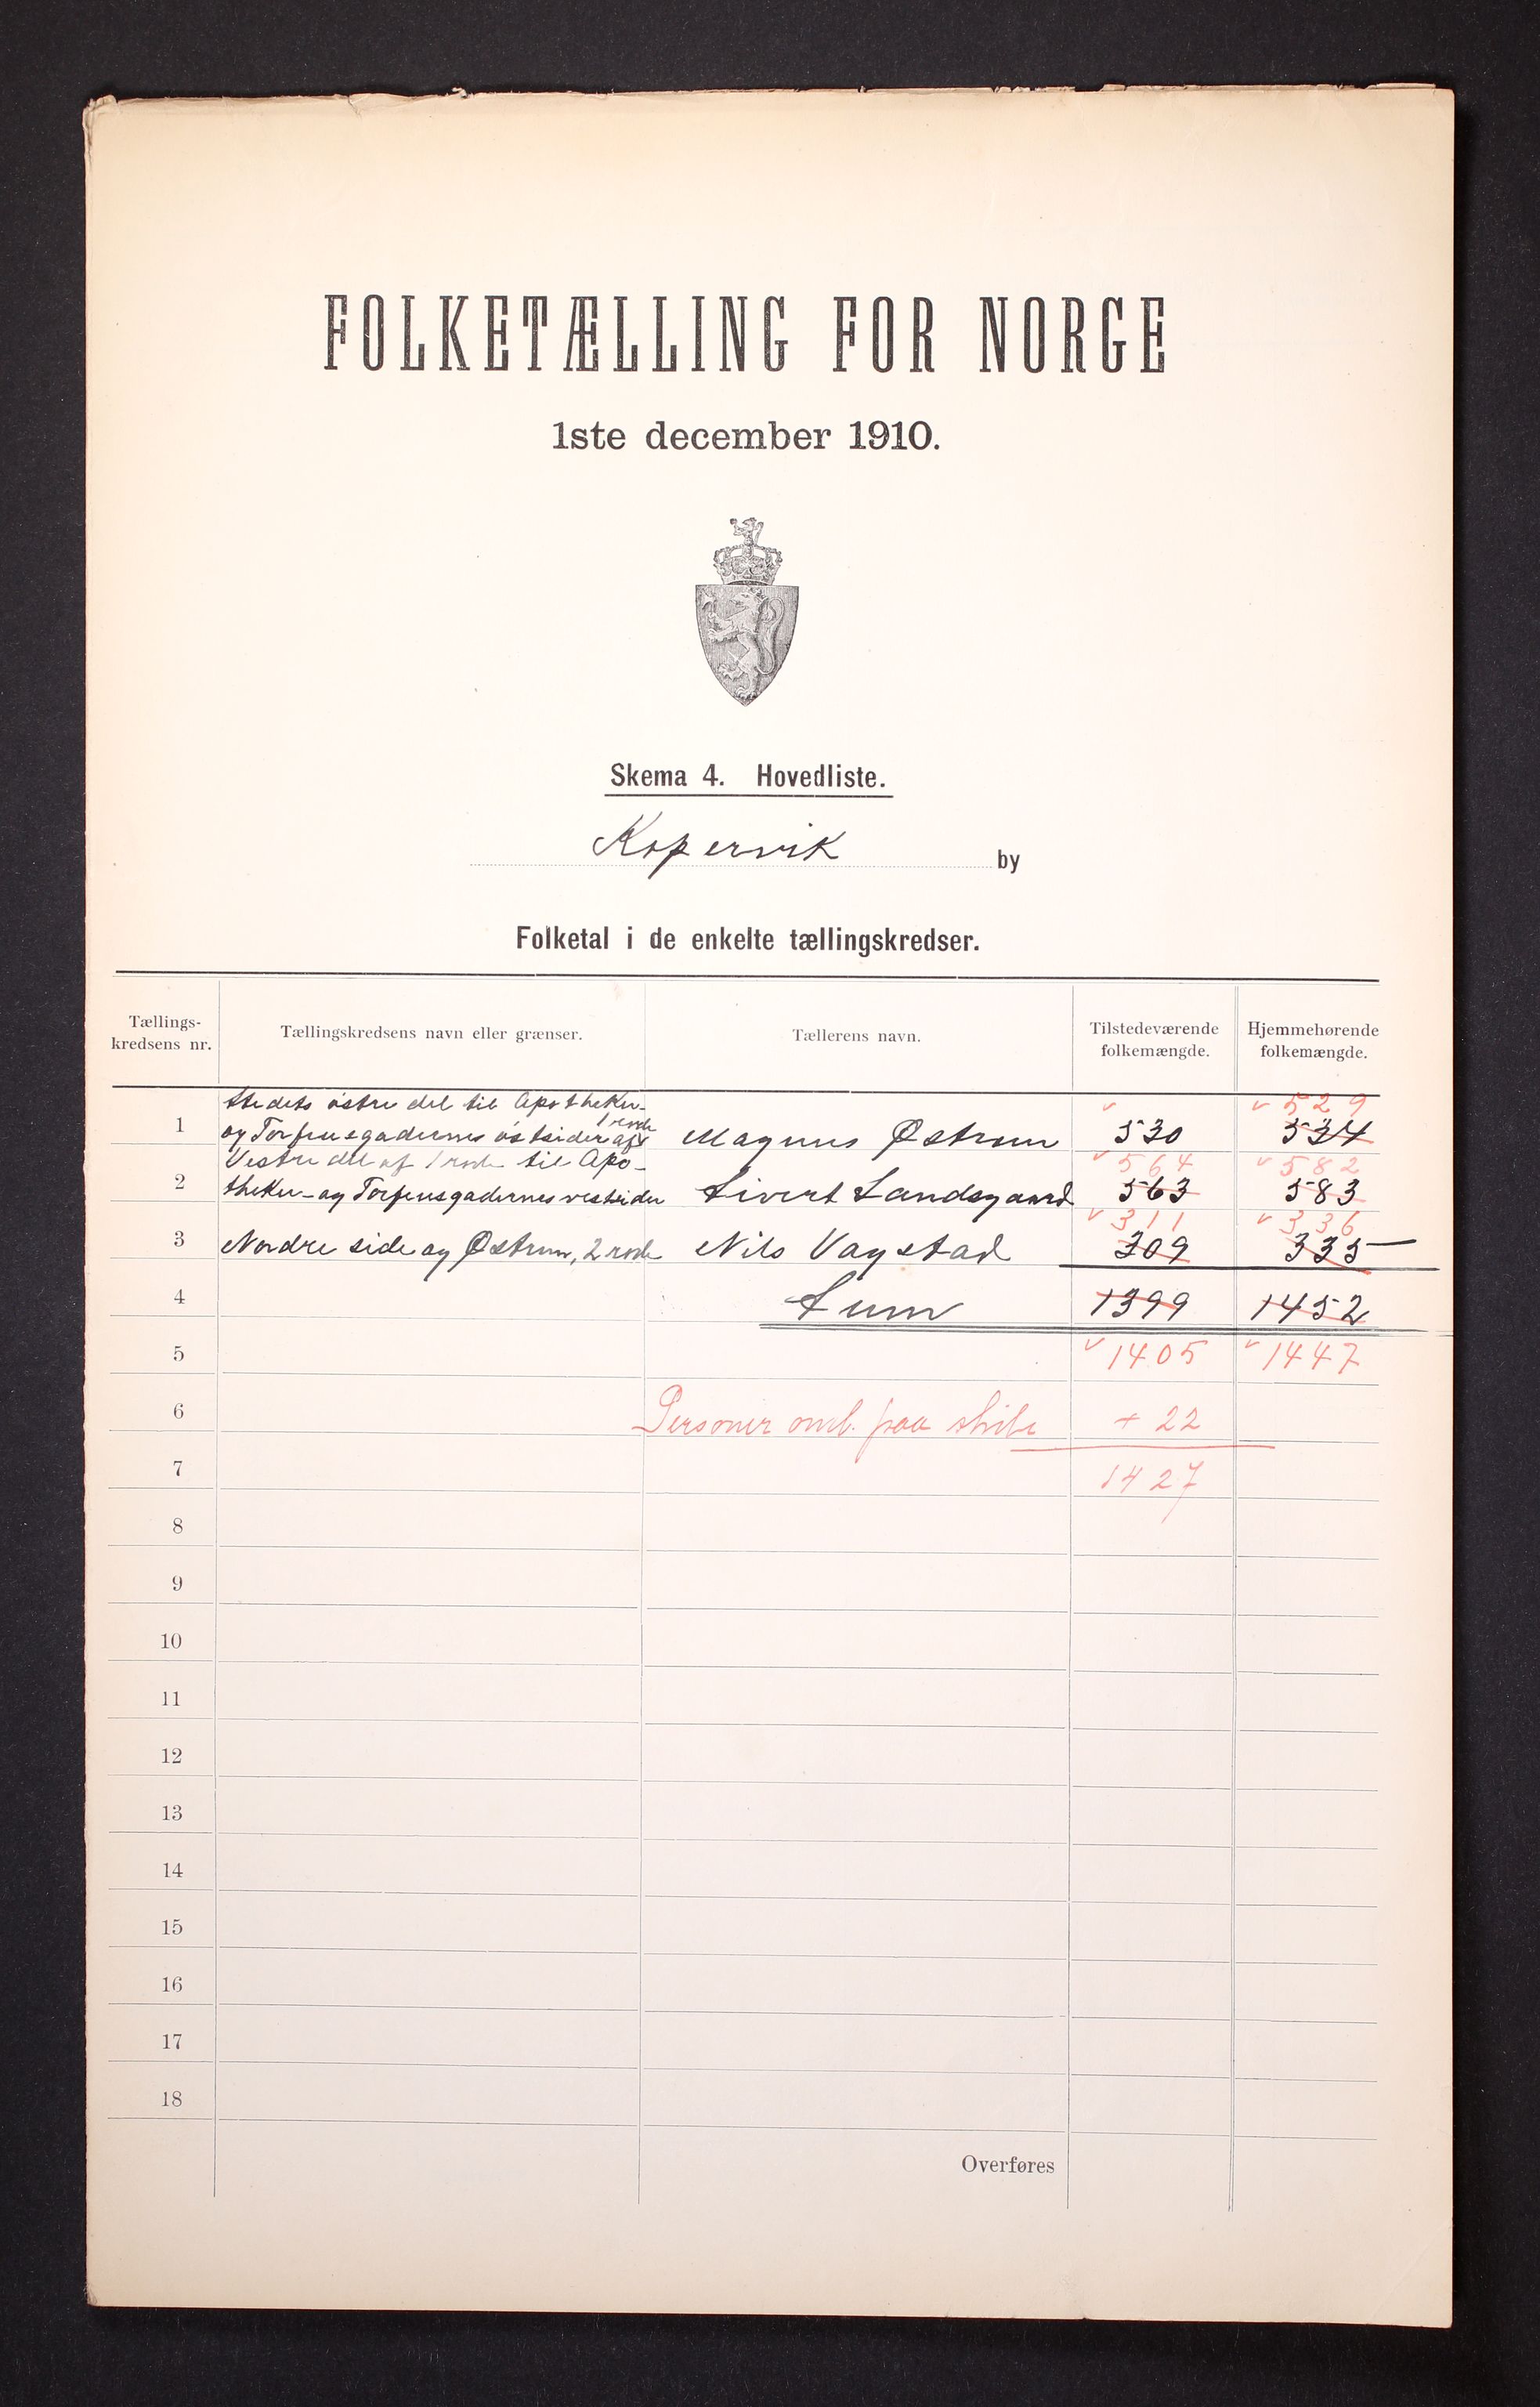 FOLKETÆLLING FOR NORGE
1ste december 1910.
Skema 4. Hovedliste.
Kopervik by
Folketal i de enkelte tællingskredser.
Tællings-
kredsens nr.
Tællingskredsens navn eller grænser.
Tællerens navn.
Tilstedeværende
folkemængde.
Hjemmehørende
folkemængde.
Stedets østre del til Apotheker-
1 rode
529
1 og Torfeusgadernes østsider af Magnus Østrem 530 534
Vestre del af 1 rode til Apo-
564 582
2 theker- og Torfeusgadernes vestsider Sivert Landsgaard 563 583
311 336
3 Nordre side og Østrem, 2 rode Nils Vagstad 309 335
4 Sum 1399 1452
5 1405 1447
6 Personer omb. paa skibe + 22
7 1427
8
9
10
11
12
13
14
15
16
17
18
Overføres